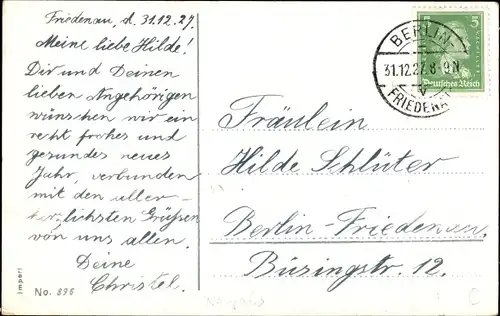 Friedenau, d. 31.12.27.
Meine liebe Hilde!
Dir und Deinen
lieben Angehörigen
wünschen wir ein
recht frohes und
gesundes neues
Jahr, verbunden
mit den aller-
herzlichsten Grüßen
von uns allen.
Deine
Christel.
Import
No. 896
BERLIN-
31.12.27. 8-9 N
V
FRIEDENAU
5 5
Deutsches Reich
Fräulein
Hilde Schlüter
Berlin-Friedenau,
Büsingstr. 12.
C